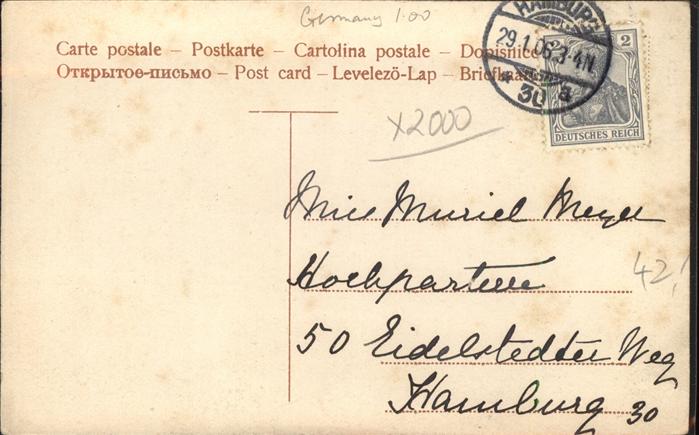 Germany 1.00
Carte postale – Postkarte – Cartolina postale – Dopisnice
Открытое-письмо – Post card – Levelezö-Lap – Briefkaart
HAMBURG
29.1.06.3-4N.
* 30 a
2
DEUTSCHES REICH
X2000
Miss Muriel Meyer
Hochparterre
42,
50 Eidelstedter Weg
Hamburg 30